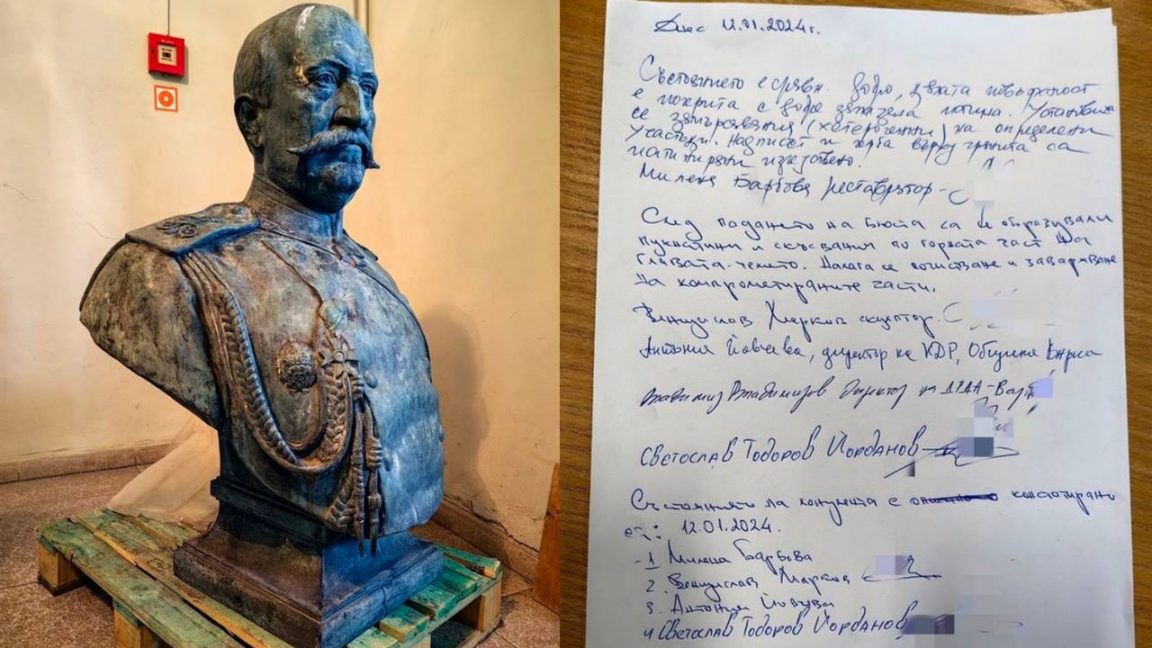 Днес 12.01.2024г.
Състоянието е сравн. добро, цялата повърхност
е покрита с добре запазена патина. Установиха
се замърсявания (хетерогенни) на определени
участъци. Надписът и герба върху гранита са
патинирани изкуствено.
Милена Барбова реставратор -
След падането на бюста са се образували
пукнатини и скъсвания по горната част на
главата - темето. Налага се почистване и заваряване
на компрометираните части.
Венцислав Марков скулптор.
Антония Йовчева, директор на КДР, Община Варна
Владимир Владимиров Директор на
СВЕТОСЛАВ ТОДОРОВ ЙОРДАНОВ
Състоянието на монумента е констатирано
12.01.2024.
1 Милена Барбова
2. Венцислав Марков
3. Антония Йовчева
4 СВЕТОСЛАВ ТОДОРОВ ЙОРДАНОВ